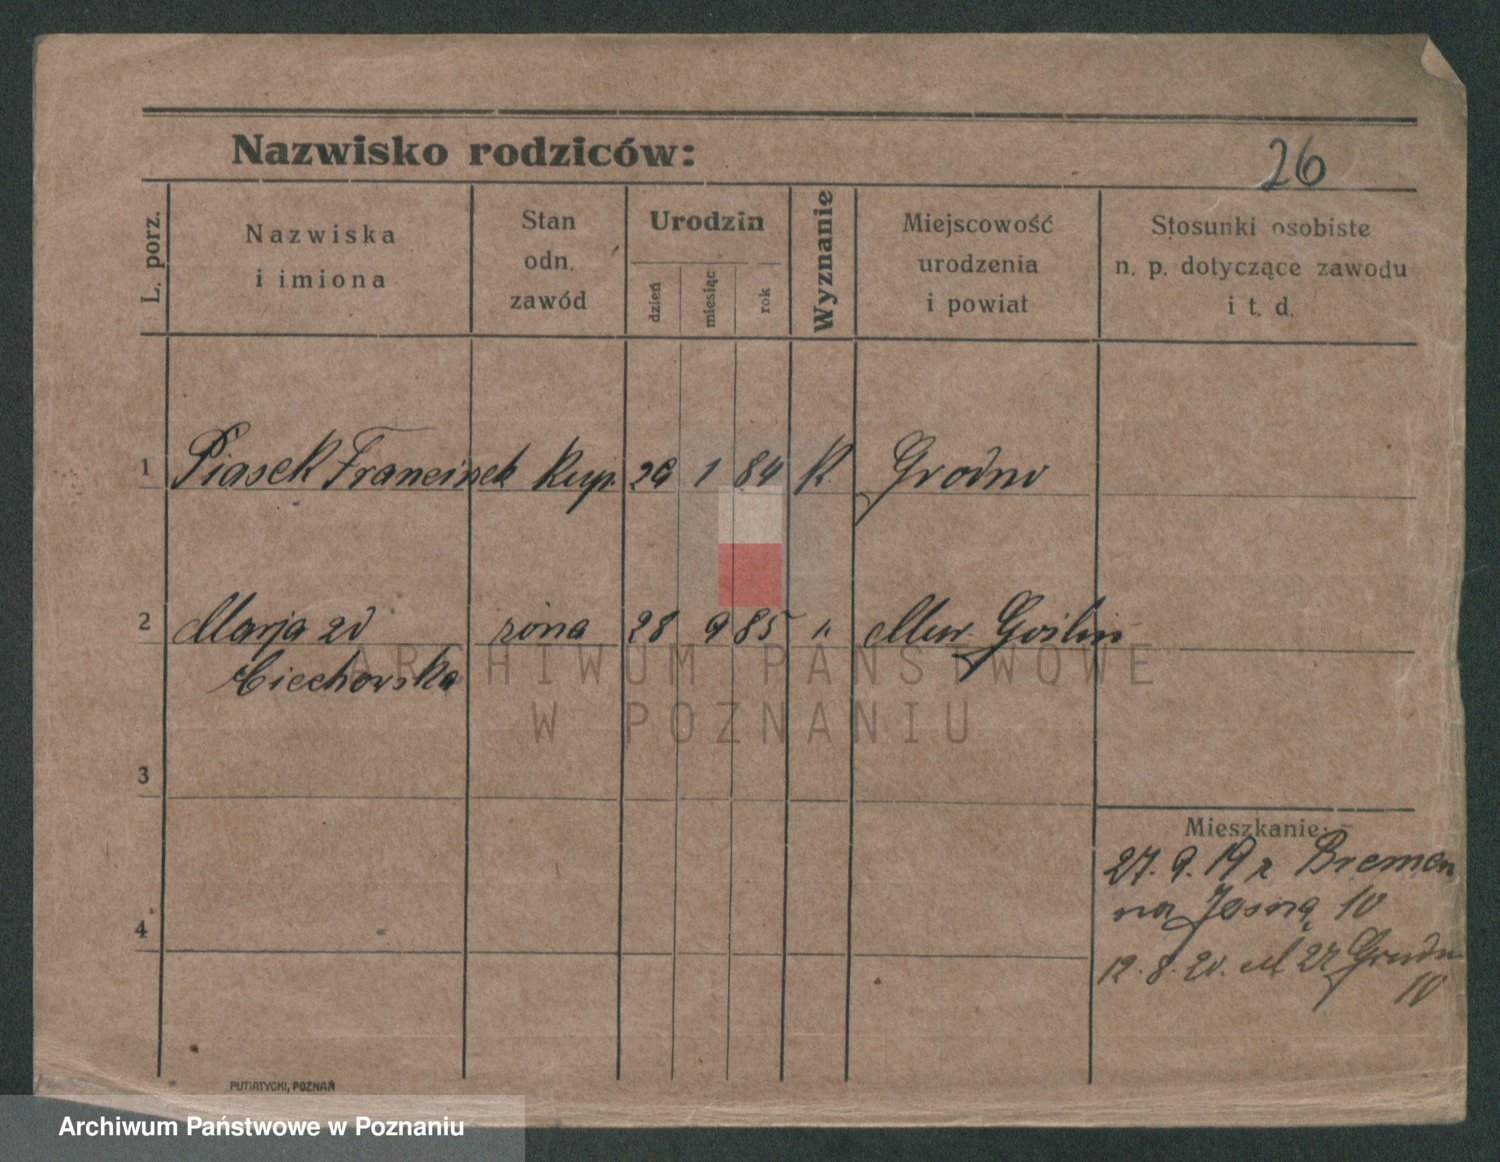 Nazwisko rodziców:
26
L. porz.
Nazwiska
i imiona
Stan
odn.
zawód
Urodzin
dzień
miesiąc
rok
Wyznanie
Miejscowość
urodzenia
i powiat
Stosunki osobiste
n. p. dotyczące zawodu
i t. d.
1 Piasek Franciszek kup. 29 1 84 K Grodno
2 Marja zd żona 28 9 85 " Mur. Goślin
Ciechowska
3
Mieszkanie:
27. 9. 19 z Bremen
na Jasną 10
4
12. 8. 20. 27 Grudn
10
PUTIATYCKI, POZNAŃ
ARCHIWUM PAŃSTWOWE
W POZNANIU
Archiwum Państwowe w Poznaniu